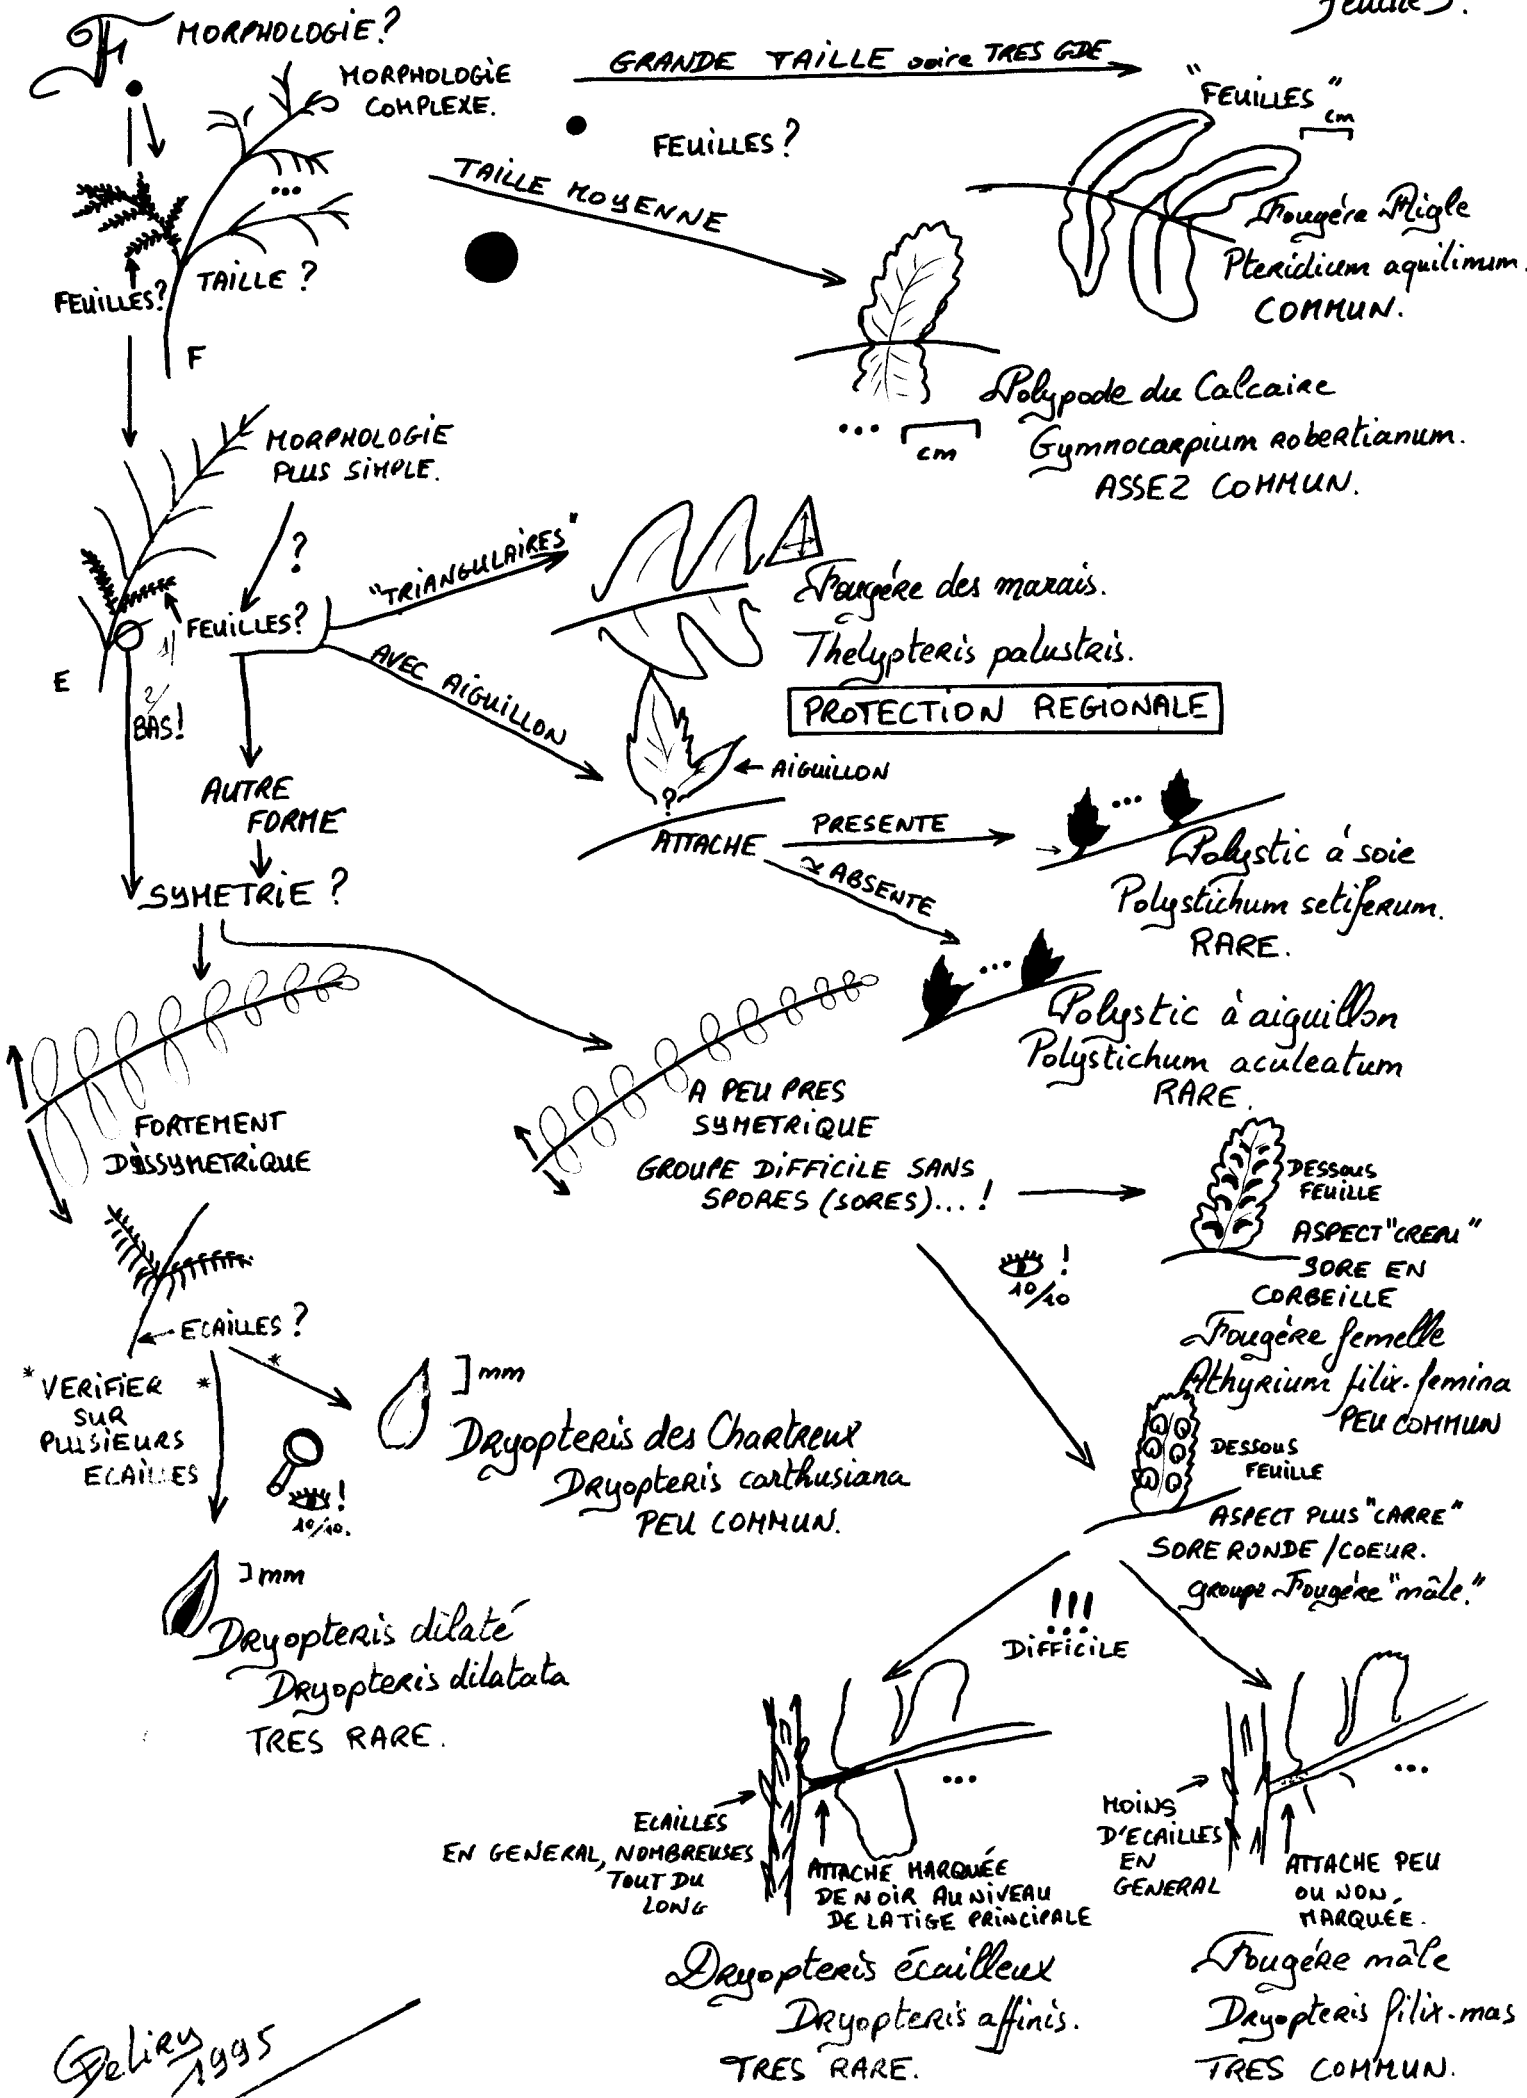 feuilles.
MORPHOLOGIE?
MORPHOLOGIE
COMPLEXE.
GRANDE TAILLE voire TRES GDE
FEUILLES?
TAILLE MOYENNE
"FEUILLES"
cm
Fougére Aigle
Pteridium aquilinum.
COMMUN.
FEUILLES?
TAILLE?
F
Polypode du Calcaire
... cm
Gymnocarpium robertianum.
ASSEZ COMMUN.
MORPHOLOGIE
PLUS SIMPLE.
?
"TRIANGULAIRES"
Fougére des marais.
Thelypteris palustris.
PROTECTION REGIONALE
FEUILLES?
1/
E
2/
BAS!
AVEC AIGUILLON
AIGUILLON
?
ATTACHE
PRESENTE
≃ ABSENTE
...
Polystic à soie
Polystichum setiferum.
RARE.
AUTRE
FORME
SYMETRIE?
...
Polystic à aiguillon
Polystichum aculeatum
RARE.
FORTEMENT
DISSYMETRIQUE
A PEU PRES
SYMETRIQUE
GROUPE DIFFICILE SANS
SPORES (SORES)...!
!
10/10
DESSOUS
FEUILLE
ASPECT "CREPU"
SORE EN
CORBEILLE
Fougére femelle
Athyrium filix-femina
PEU COMMUN
ECAILLES?
* VERIFIER *
SUR
PLUSIEURS
ECAILLES
*
mm
Dryopteris des Chartreux
Dryopteris carthusiana
PEU COMMUN.
!
10/10.
mm
Dryopteris dilaté
Dryopteris dilatata
TRES RARE.
DESSOUS
FEUILLE
ASPECT PLUS "CARRE"
SORE RONDE/COEUR.
groupe Fougére "mâle."
!!!
DIFFICILE
...
ECAILLES
EN GENERAL, NOMBREUSES
TOUT DU
LONG
ATTACHE MARQUÉE
DE NOIR AU NIVEAU
DE LA TIGE PRINCIPALE
Dryopteris écailleux
Dryopteris affinis.
TRES RARE.
...
MOINS
D'ECAILLES
EN
GENERAL
ATTACHE PEU
OU NON
MARQUÉE.
Fougére mâle
Dryopteris filix-mas
TRES COMMUN.
CDeliry
1995